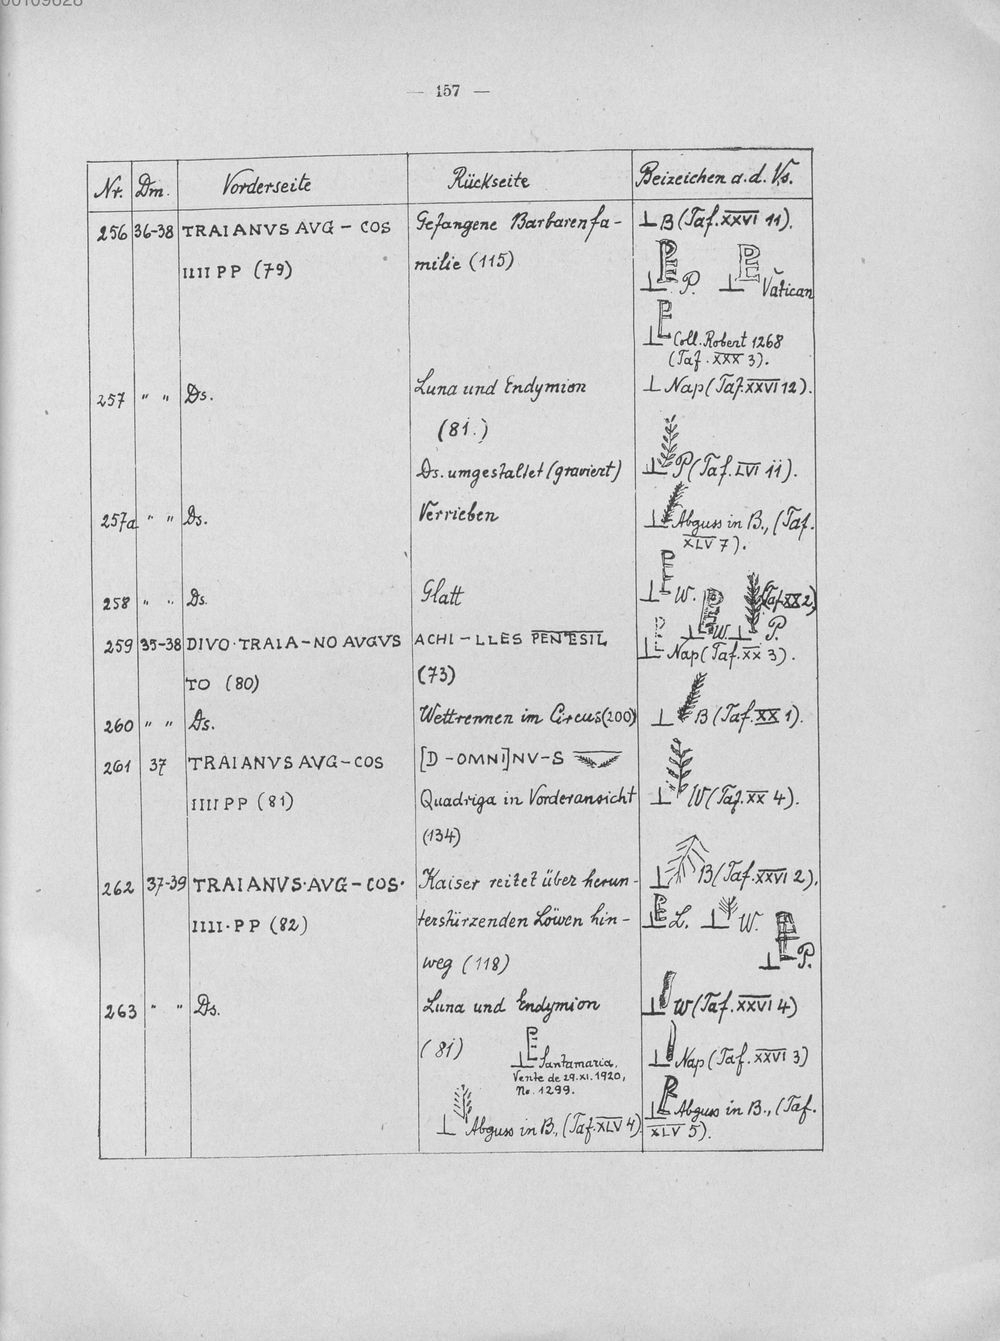 00109628
— 157 —
Nr. Dm. Vorderseite Rückseite Beizeichen a. d. Vs.
256 36-38 TRAIANVS AVG – COS Gefangene Barbarenfa- ⊥ B (Taf. XXVI 11).
IIII PP (79) milie (115) P. Vatican
Coll. Robert 1268
(Taf. XXX 3).
257 " " Ds. Luna und Endymion ⊥ Nap (Taf. XXVI 12).
(81.)
Ds. umgestaltet (graviert) ⊥ P (Taf. LVI 11).
257a " " Ds. Verrieben ⊥ Abguss in B., (Taf.
XLV 7).
258 " " Ds. Glatt ⊥ W. (Taf. XX 2)
⊥ W. ⊥ P.
259 35-38 DIVO·TRAIA–NO AVGVS ACHI – LLES PENTESIL ⊥ Nap (Taf. XX 3).
TO (80) (73)
260 " " Ds. Wettrennen im Circus (200) ⊥ B (Taf. XX 1).
261 37 TRAIANVS AVG–COS [D–OMNI]NV–S
IIII PP (81) Quadriga in Vorderansicht ⊥ W (Taf. XX 4).
(134)
262 37-39 TRAIANVS·AVG–COS· Kaiser reitet über herun- ⊥ B (Taf. XXVI 2).
IIII·PP (82) terstürzenden Löwen hin- ⊥ L. ⊥ W.
weg (118) ⊥ P.
263 " " Ds. Luna und Endymion ⊥ W (Taf. XXVI 4)
(81) ⊥ Santamaria. ⊥ Nap (Taf. XXVI 3)
Vente de 29. XI. 1920,
No. 1299.
⊥ Abguss in B., (Taf. XLV 4) ⊥ Abguss in B., (Taf.
XLV 5).